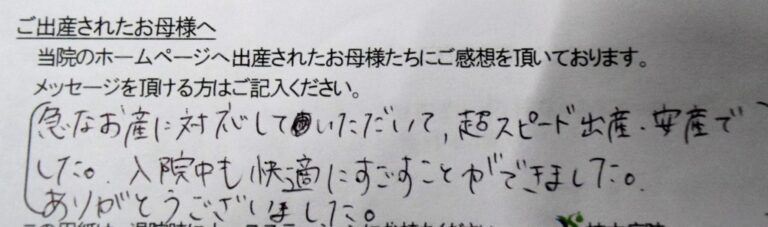 ご出産されたお母様へ
当院のホームページへ出産されたお母様たちにご感想を頂いております。
メッセージを頂ける方はご記入ください。
急なお産に対応していただいて、超スピード出産・安産で
した。入院中も快適にすごすことができました。
ありがとうございました。